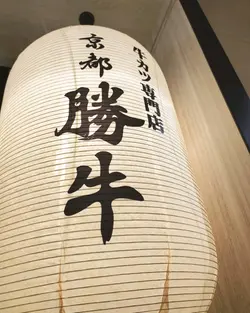 牛カツ専門店
京都
勝牛